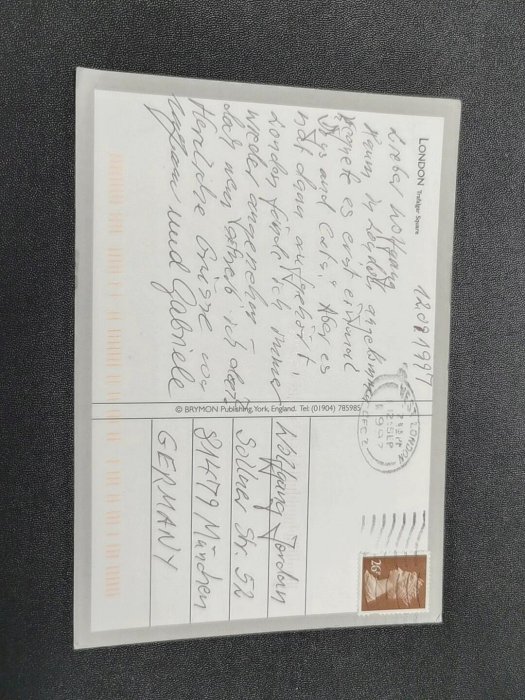 LONDON Trafalgar Square
12.09.1997
Lieber Wolfgang
Kaum in London angekommen
regnete es erst einmal
dogs and cats; Aber es
hat dann aufgehört.
London finde ich immer
wieder angenehm
mein ich
Herzliche Grüsse von
und Gabriele
© BRYMON Publishing, York, England. Tel: (01904) 785985
LONDON
12 SEP
1997
26
Wolfgang Jordan
Sollner Str. 52
81479 München
GERMANY